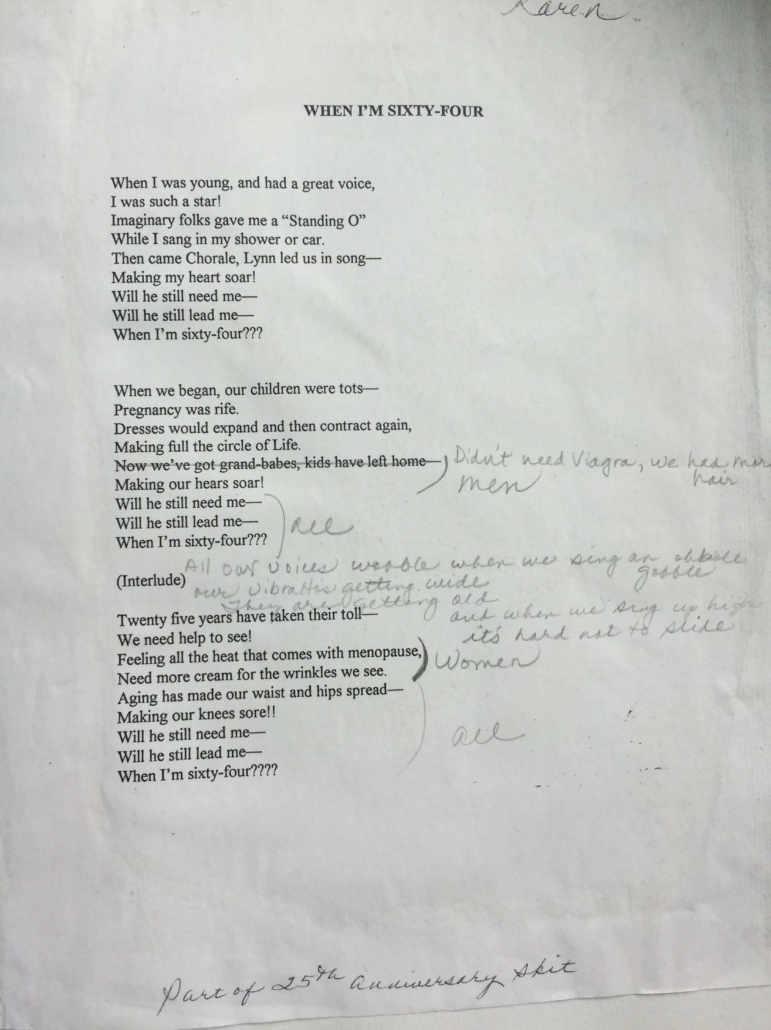 Karen
WHEN I'M SIXTY-FOUR
When I was young, and had a great voice,
I was such a star!
Imaginary folks gave me a “Standing O”
While I sang in my shower or car.
Then came Chorale, Lynn led us in song—
Making my heart soar!
Will he still need me—
Will he still lead me—
When I'm sixty-four???
When we began, our children were tots—
Pregnancy was rife.
Dresses would expand and then contract again,
Making full the circle of Life.
Now we've got grand-babes, kids have left home— Didn't need Viagra, we had more
hair
Making our hears soar! men
Will he still need me—
Will he still lead me— all
When I'm sixty-four???
All our voices wobble when we sing an
gobble
(Interlude)
our vibratos getting wide
They are getting old
Twenty five years have taken their toll— and when we sing up high
We need help to see! it's hard not to slide
Feeling all the heat that comes with menopause, Women
Need more cream for the wrinkles we see.
Aging has made our waist and hips spread—
Making our knees sore!!
Will he still need me— all
Will he still lead me—
When I'm sixty-four????
Part of 25th anniversary skit